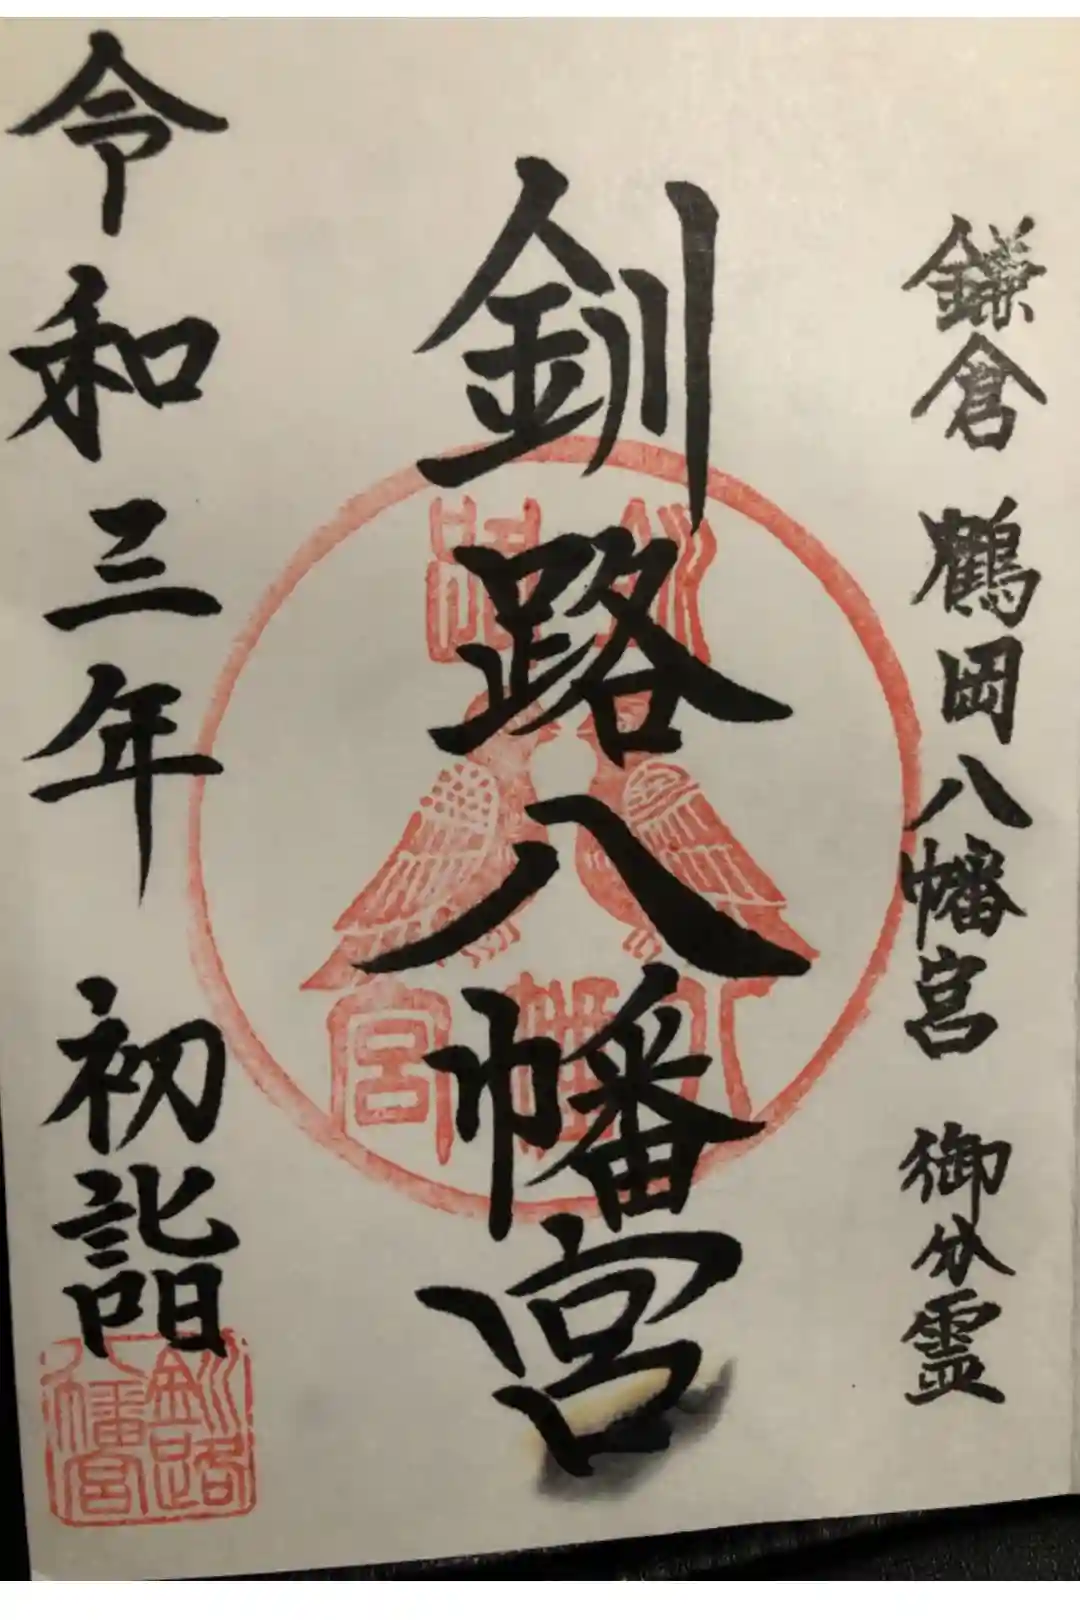 鎌倉 鶴岡八幡宮 御分霊
釧路八幡宮
令和三年 初詣
釧路
八幡宮
釧路
八幡宮